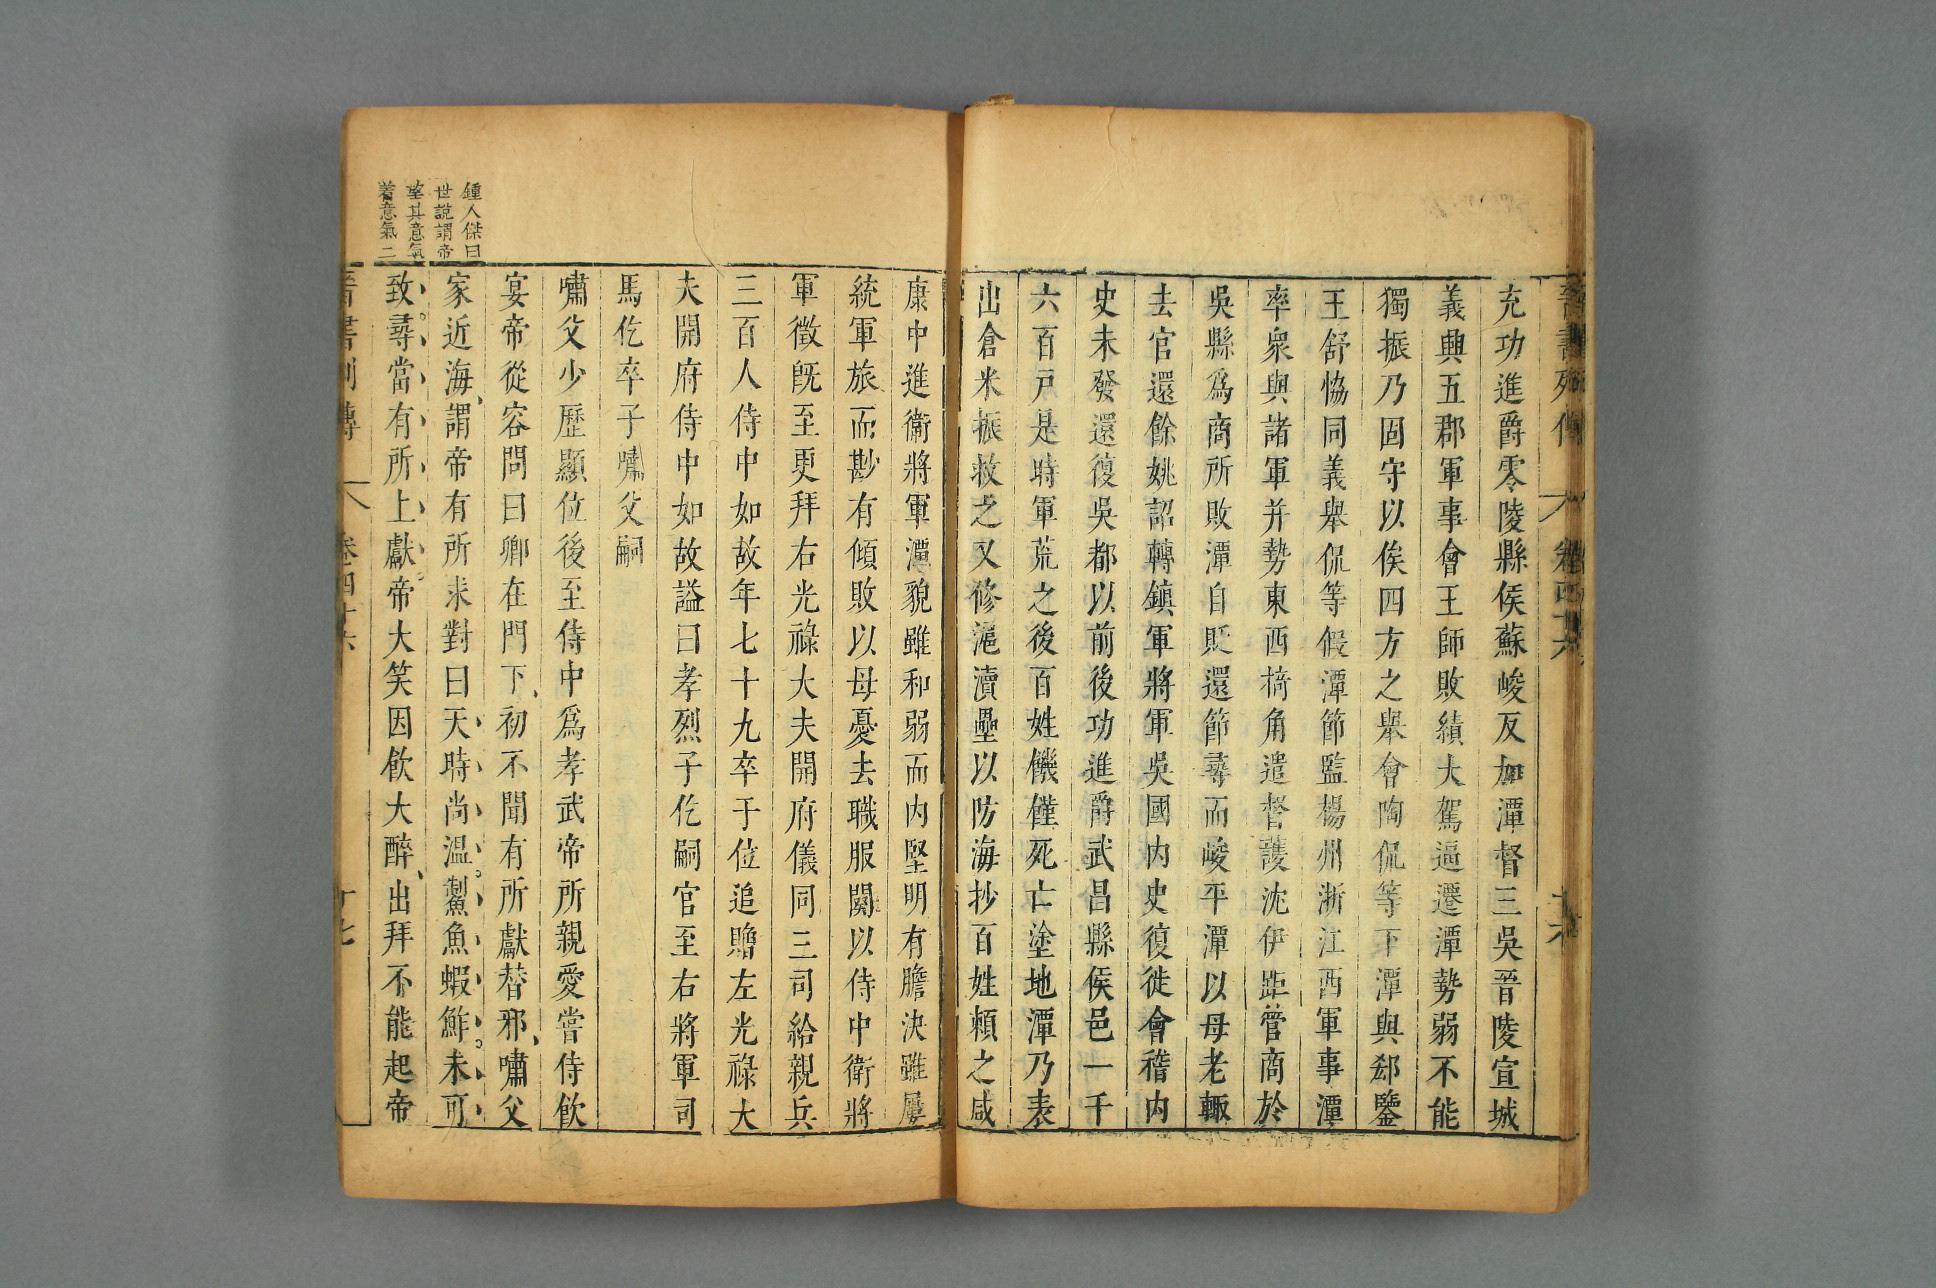 晉書列傳 卷四十六 十六
充功進爵零陵縣侯蘇峻反加潭督三吳晉陵宣城
義興五郡軍事會王師敗績大駕逼遷潭勢弱不能
獨振乃固守以俟四方之舉會陶侃等下潭與郄鑒
王舒恊同義舉侃等假潭節監楊州浙江西軍事潭
率衆與諸軍并勢東西掎角遣督護沈伊距管商於
吳縣爲商所敗潭自貶還節尋而峻平潭以母老輙
去官還餘姚詔轉鎮軍將軍吳國內史復徙會稽内
史未發還復吳都以前後功進爵武昌縣侯邑一千
六百戸是時軍荒之後百姓饑饉死亡塗地潭乃表
出倉米振救之又修滬瀆壘以防海抄百姓頼之咸
康中進衞將軍潭貌雖和弱而内堅明有膽決雖屢
統軍旅而尠有傾敗以母憂去職服闋以侍中衛將
軍徵旣至更拜右光祿大夫開府儀同三司給親兵
三百人侍中如故年七十九卒于位追贈左光祿大
夫開府侍中如故謚曰孝烈子仡嗣官至右將軍司
馬仡卒子嘯父嗣
嘯父少歷顯位後至侍中爲孝武帝所親愛嘗侍飮
宴帝從容問曰卿在門下、初不聞有所獻替邪、嘯父
家近海、謂帝有所求對曰天時尚温。䱥魚蝦鮓。未可
致。尋當有所上獻。帝大笑因飮大醉、出拜不能起帝
鍾人傑曰
世說謂帝
望其意氣
着意氣二
晉書列傳 卷四十六 十七